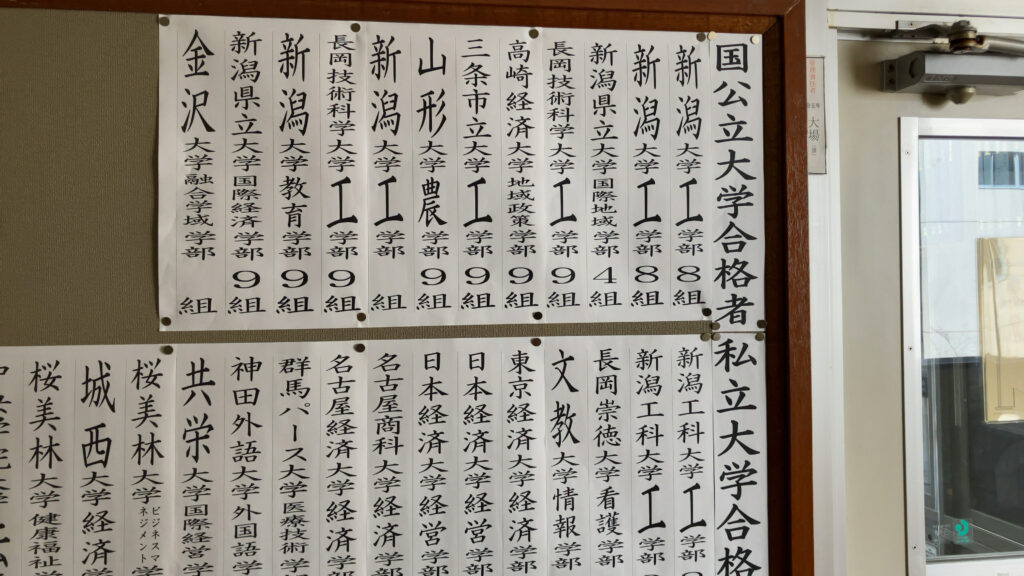 国公立大学合格者
新潟大学工学部8組
新潟大学工学部8組
新潟県立大学国際地域学部4組
長岡技術科学大学工学部9組
高崎経済大学地域政策学部9組
三条市立大学工学部9組
山形大学農学部9組
新潟大学工学部 組
長岡技術科学大学工学部9組
新潟大学教育学部9組
新潟県立大学国際経済学部9組
金沢大学融合学域学部 組
私立大学合格
新潟工科大学工学部
新潟工科大学工学部
長岡崇徳大学看護学部
文教大学情報学部
東京経済大学経済学部
日本経済大学経営学部
日本経済大学経営学部
名古屋商科大学経済学部
名古屋経済大学経済学部
群馬パース大学医療技術学
神田外語大学外国語学
共栄大学国際経営学
桜美林大学ビジネスマネジメント
城西大学経済学
桜美林大学健康福祉学
大場